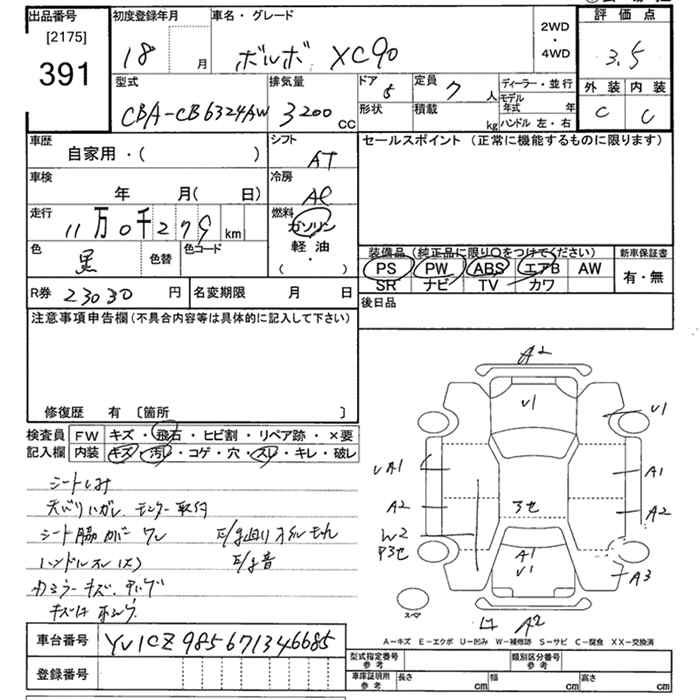 出品番号
[2175]
391
初度登録年月
18
月
車名・グレード
ボルボ XC90
2WD
・
4WD
評価点
3.5
外装 内装
C C
型式
CBA-CB6324AW
排気量
3200
CC
ドア
5
定員
7
人
形状
積載
kg
ディーラー・並行
モデル
年式 年
ハンドル 左・右
車歴
自家用・( )
シフト
AT
セールスポイント (正常に機能するものに限ります)
車検
年 月( 日)
冷房
AC
走行
11万0千279 km
燃料
ガソリン
軽・油
( )
色
黒
色替
色コード
装備品 (純正品に限り〇をつけてください)
PS PW ABS エアB AW
SR ナビ TV カワ
新車保証書
有・無
R券 23030 円
名変期限 月 日
後日品
注意事項申告欄(不具合内容等は具体的に記入して下さい)
修復歴 有 〔箇所 〕
検査員
記入欄
FW キズ・飛石・ヒビ割・リペア跡・×要
内装 キズ・汚レ・コゲ・穴・スレ・キレ・破レ
シートしみ
天バリハガレ モニター取付
シート脇カバーワレ
ハンドルスレ(大)
E/g音
A2
V1
V1
UA1
A1
A2
A2
W2
P3セ
3セ
A1
V1
A3
スペア
A2
A-キズ E-エクボ U-凹み W-補修跡 S-サビ C-腐食 XX-交換済
車台番号
YV1CZ985671346685
登録番号
型式指定番号
参考
類別区分番号
参考
車庫証明用
参考
長さ cm 幅 cm 高さ cm